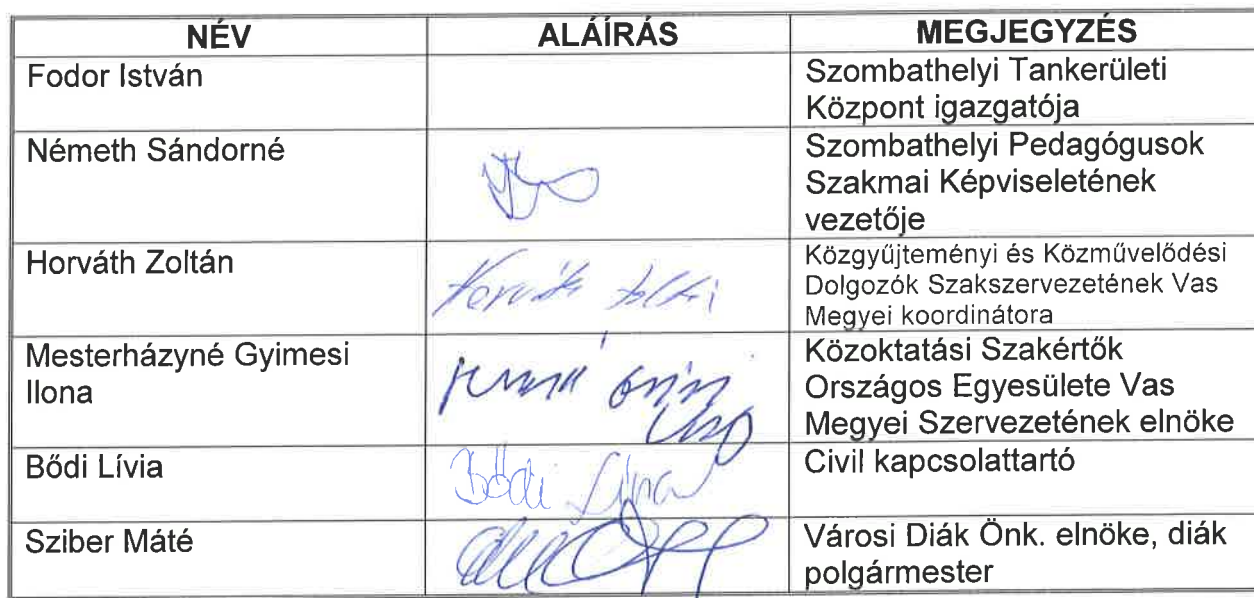 NÉV ALÁÍRÁS MEGJEGYZÉS
Fodor István Szombathelyi Tankerületi
Központ igazgatója
Németh Sándorné Szombathelyi Pedagógusok
Szakmai Képviseletének
vezetője
Horváth Zoltán Horváth Zoltán Közgyűjteményi és Közművelődési
Dolgozók Szakszervezetének Vas
Megyei koordinátora
Mesterházyné Gyimesi Közoktatási Szakértők
Ilona Országos Egyesülete Vas
Megyei Szervezetének elnöke
Bődi Lívia Bődi Lívia Civil kapcsolattartó
Sziber Máté Városi Diák Önk. elnöke, diák
polgármester